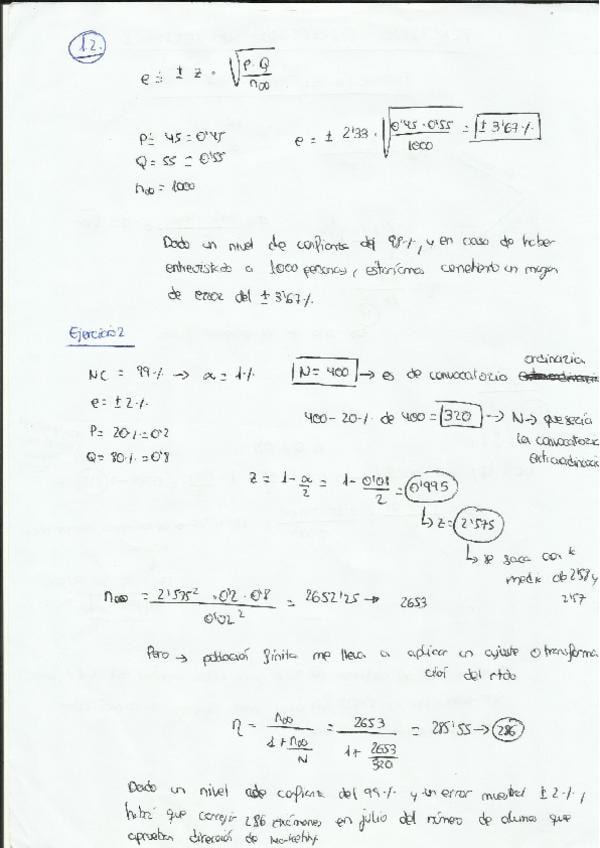 1 2.
e = ± z · √(P·Q / n∞)
P = 45 = 0'45
e = ± 2'33 · √(0'45 · 0'55 / 1000) = ± 3'67%
Q = 55 = 0'55
n∞ = 1000
Dado un nivel de confianza del 98%, y en caso de haber
entrevistado a 1000 personas, estaríamos cometiendo un margen
de error del ± 3'67%.
Ejercicio 2
ordinaria
NC = 99% → α = 1% N = 400 → es de convocatoria
e = ± 2%
400 - 20% de 400 = 320 → N → que sería
P = 20% = 0'2
la convocatoria
Q = 80% = 0'8
extraordinaria
z = 1 - α/2 = 1 - 0'01/2 = 0'995
↳ z = 2'575
↳ se saca con la
media de 2'58 y
2'57
n∞ = 2'575² · 0'2 · 0'8 / 0'02² = 2652'25 → 2653
Pero → población finita me lleva a aplicar un ajuste o transforma
ción del rtdo
n = n∞ / (1 + n∞/N) = 2653 / (1 + 2653/320) = 285'55 → 286
Dado un nivel de confianza del 99% y un error muestral ± 2%,
habrá que corregir 286 exámenes en julio del número de alumnos que
aprueban dirección de Marketing